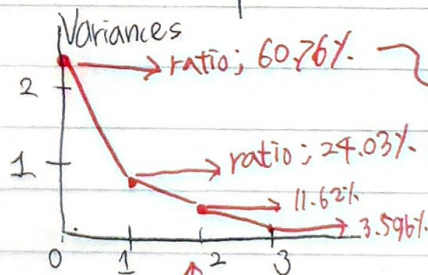 Variances
ratio; 60.76%
2
ratio; 24.03%
1
11.62%
3.596%
0
0 1 2 3